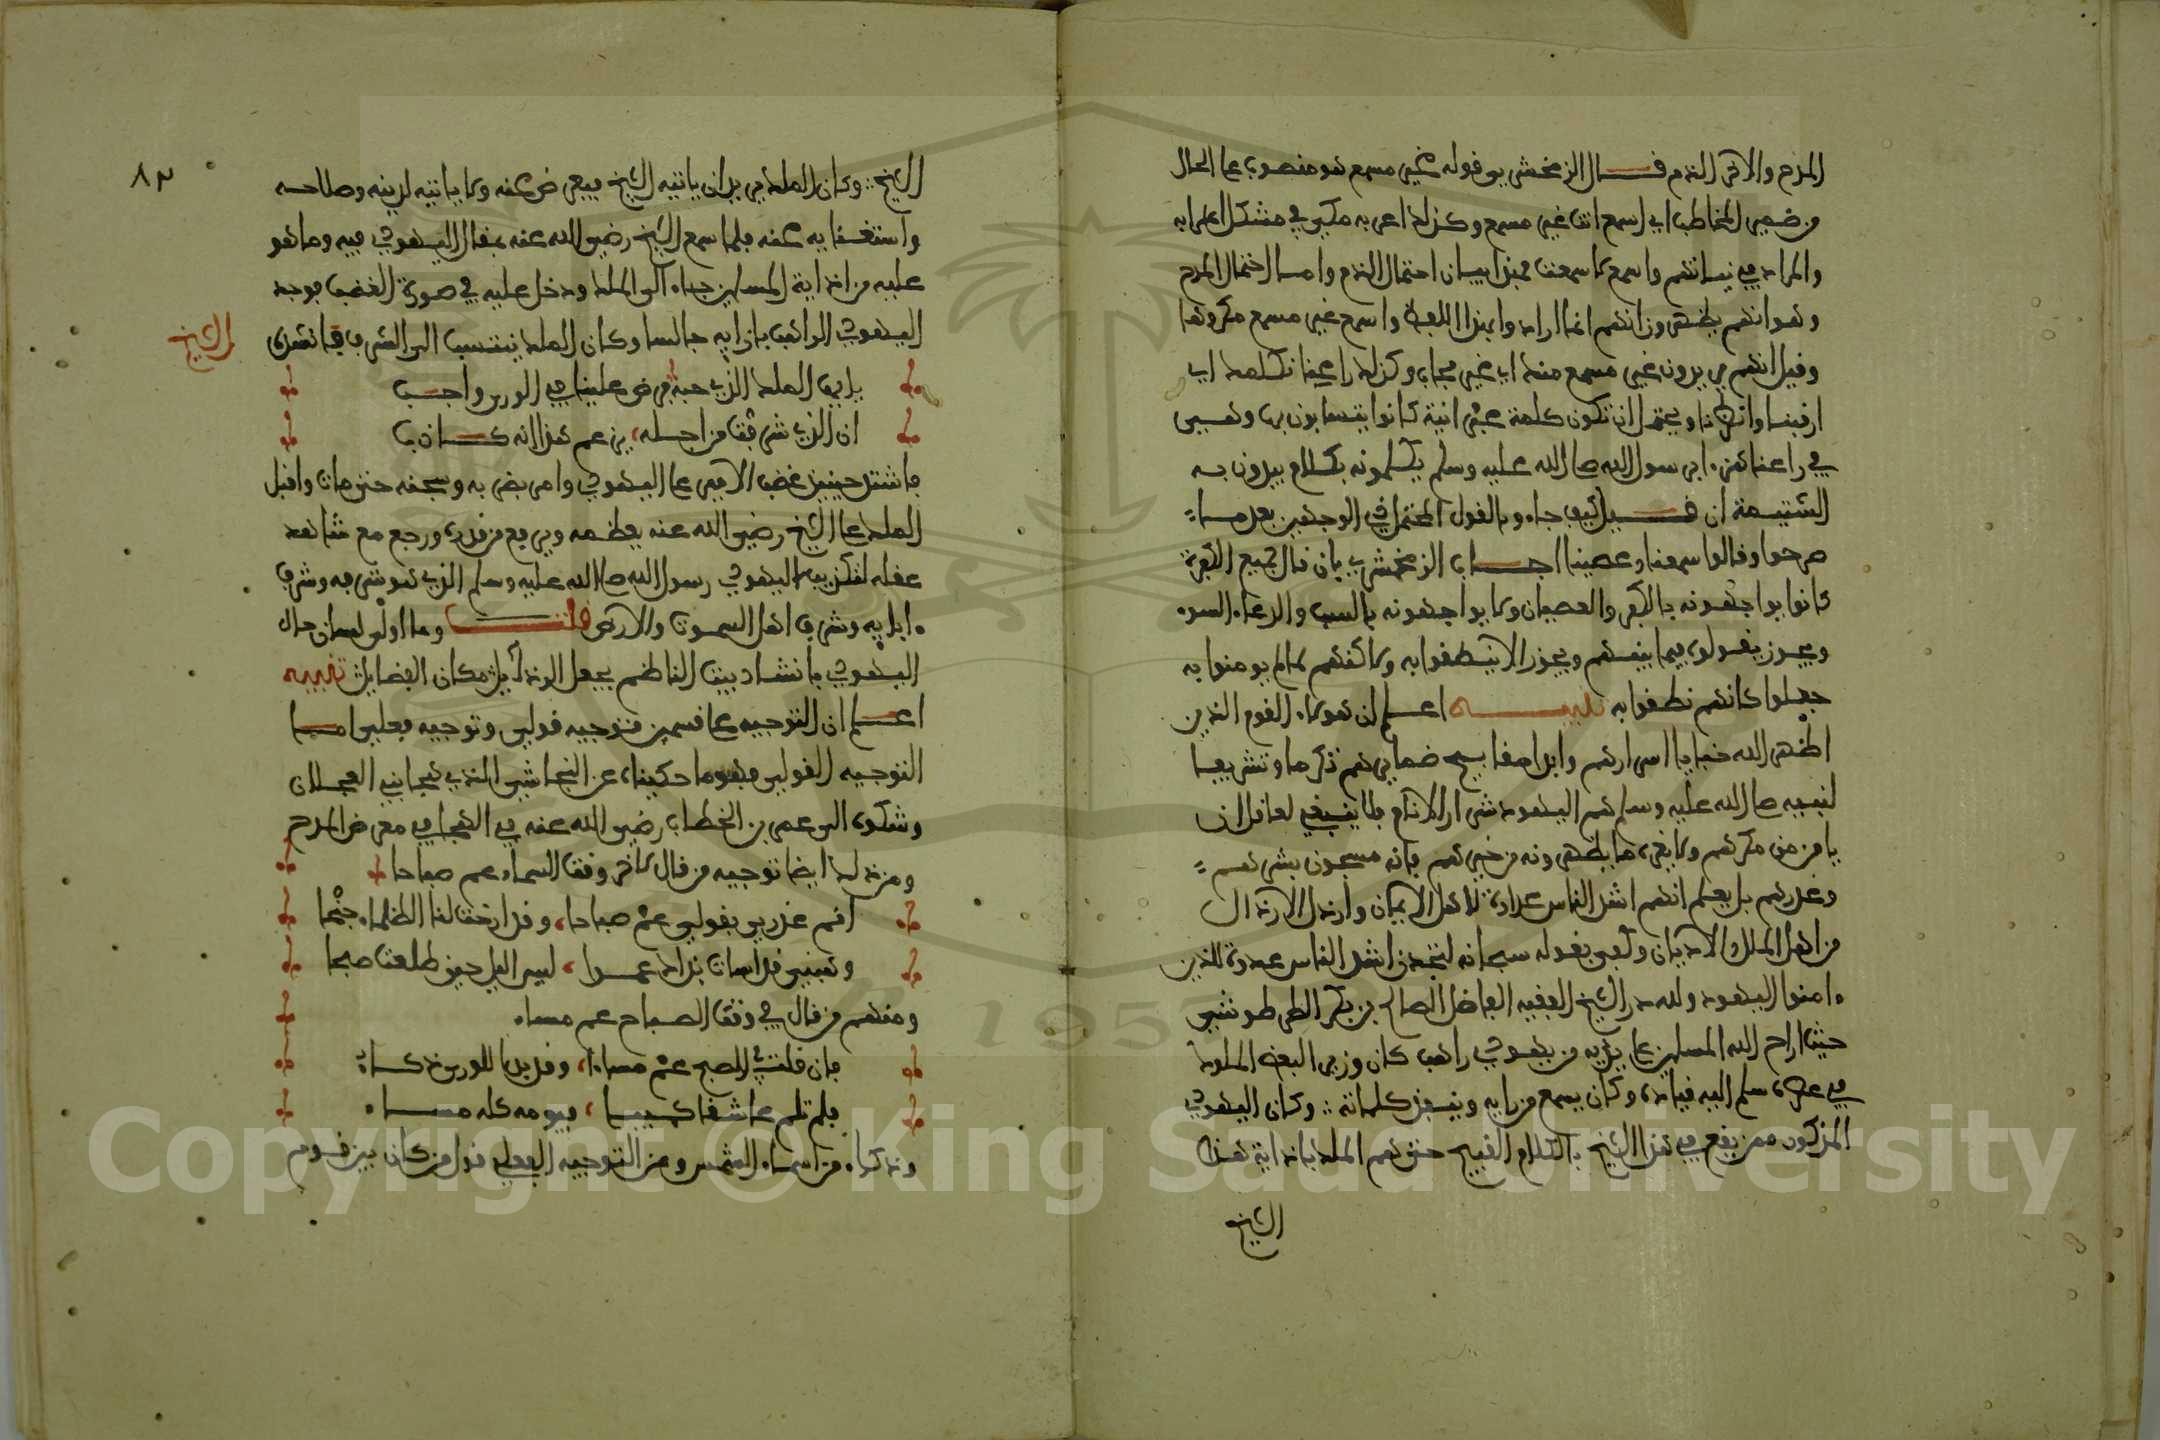 المدح والاخر الذم قال الزمخشري قوله غير مسمع هو منصوب على الحال
من ضمير المخاطب اي اسمع انت غير مسمع وكذلك اعربه مكي في مشكل اعرابه
والمراد في نياتهم واسمع لا سمعت فهذا بيان احتمال الذم واما احتمال المدح
وهو انهم يظهرون انهم انما ارادوا بهذا اللفظ واسمع غير مسمع مكروها
وقيل انهم يريدون غير مسمع منك اي غير مجاب وكذلك راعنا نكلمك اي
ارقبنا وانظرنا ويحتمل ان تكون كلمة عبرانية كانوا يتسابون بها وتفسير
في راعنا رسول الله صلى الله عليه وسلم يكلمونه بكلام يريدون به
الشتيمة ان قيل كيف جاءوا بالقول المحتمل في الوجهين بعد ما
صرحوا وقالوا سمعنا وعصينا اجاب الزمخشري بان قال جميع الكفرة
كانوا يواجهونه بالكفر والعصيان ولا يواجهونه بالسب والدعاء السوء
ويجوز يقولون فيما بينهم ويجوز الا ينطقوا به ولاكنهم لما لم يومنوا به
جعلوا كانهم نطقوا به تنبيه اعلم ان هؤلاء القوم الذين
اظهر الله خبايا اسرارهم وابدا صفايح ضمايرهم تكرما وتشريفا
لنبيه صلى الله عليه وسلم هم اليهود شرار الانام فلا ينبغي لعاقل ان
يامن من مكرهم ولا يغره ما يظهرونه من خيرهم فانه معجون بشرهم
وغدرهم بل يعلم انهم اشد الناس عداوة لاهل الايمان وارذل الارذال
من اهل الملل والاديان وكفى بقوله سبحانه لتجدن اشد الناس عداوة للذين
ءامنوا اليهود ولله در الشيخ الفقيه الفاضل الصالح بن بكر الطرطوشي
حيث اراح الله المسلمين على يديه من يهودي راهب كان وزير البعض الملوك
في عصره سلم اليه قياده وكان يسمع من رايه وينفذ كلماته وكان اليهودي
المذكور ممن يقع في هذا الشيخ بالكلام القبيح حتى هم الملك باذاية هذا
الشيخ
٨٣
الشيخ وكان الملك يريد ان ياتيه الشيخ فيعرض عنه ولا ياتيه لدينه وصلاحه
واستغنايه عنه فلما سمع الشيخ رضي الله عنه بمقال اليهودي فيه وما هو
عليه من اذاية المسلمين جاء الى الملك ودخل عليه في صورة الغضب فوجد
اليهودي الراهب بازايه جالسا وكان الملك ينتسب الى الشرف فانشده
الشيخ
يا ايها الملك الذي حبه فرض علينا في الورى واجب
ان الذي شرفت من اجله يزعم هذا انه كاذب
فاشتد حينئذ غضب الامير على اليهودي وامر بضربه وسجنه حتى مات واقبل
الملك على الشيخ رضي الله عنه يعظمه ويرفع من قدره ورجع مع شاهد
عقله لتكذيب اليهودي رسول الله صلى الله عليه وسلم الذي هو شرفه وشرف
ءابايه وشرف اهل السموت والارض قلت وما اولى لسان حال
اليهودي بانشاد بيت الناظم يجعل الرذايل مكان الفضايل تنبيه
اعلم ان التوجيه على قسمين توجيه قولي وتوجيه فعلي اما
التوجيه القولي فهو ما حكيناه عن النجاشي الذي هجا بني العجلان
وشكوه الى عمر بن الخطاب رضي الله عنه في الهجا في معرض المدح
ومن ذلك ايضا توجيه من قال لاخر وقت السماء عم صباحا
اتم غدري بقولي عم صباحا وقد ارخت لنا الظلماء جنحا
وهبني قد اسات بذاك عمدا ليس اليل حين طلعت صبحا
ومنهم من قال في وقت الصباح عم مساء
فان قلت للصبح عم مساءا وقد بدا للورى ذكاء
فلم تلم عاشقا كئيبا فيومه كله مساء
وذكاء من اسماء الشمس ومن التوجيه الفعلي قول من كان بين قوم
Copyright © King Saud University
1957